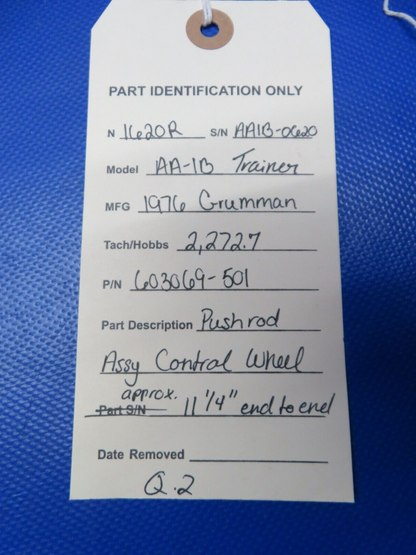 PART IDENTIFICATION ONLY
N 1620R S/N AA1B-0620
Model AA-1B Trainer
MFG 1976 Grumman
Tach/Hobbs 2,272.7
P/N 603069-501
Part Description Pushrod
Assy Control Wheel
approx.
Part S/N 11 1/4" end to end
Date Removed
Q.2